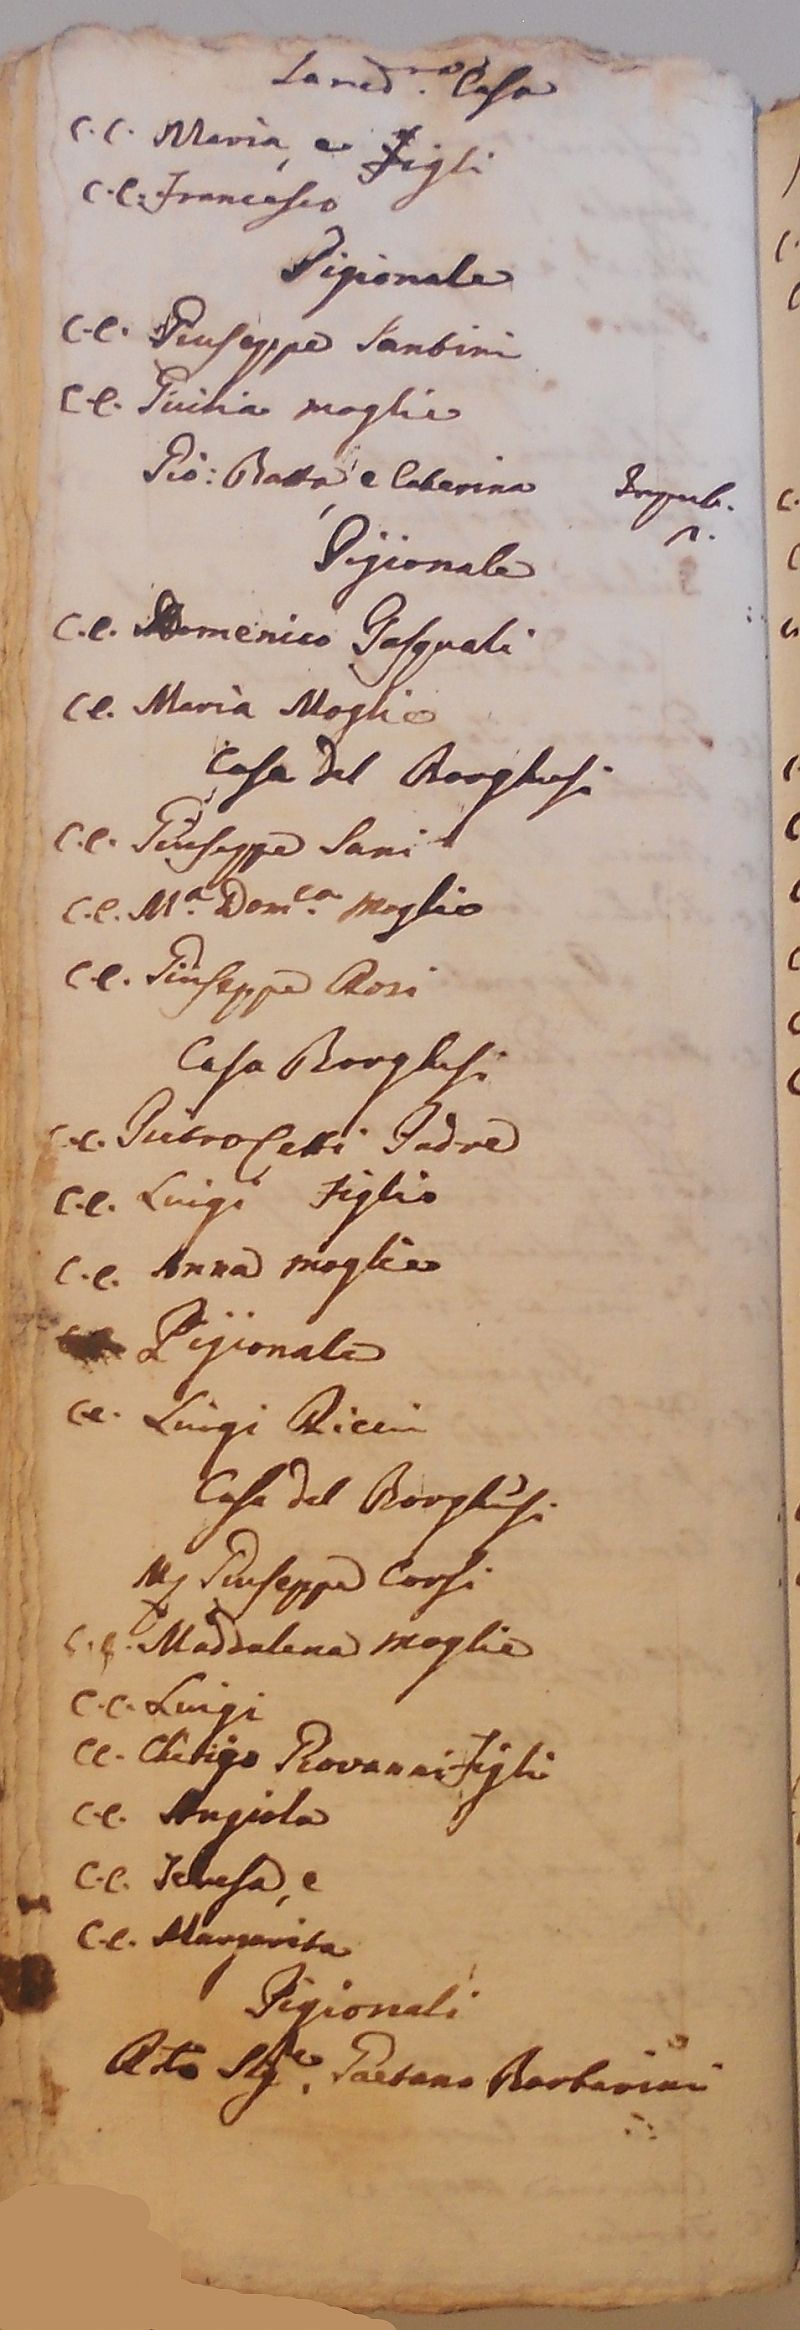 La med.ma Casa
C.C. Maria, e Figli
C.C. Francesco
Pigionale
C.C. Giuseppe Santini
C.C. Giulia moglie
Gio: Batta, e Caterina Impub.
Pijionale
C.C. Domenico Pasquali
C.C. Maria Moglie
Casa del Borghesi
C.C. Giuseppe Sani
C.C. M.a Dom.ca moglie
C.C. Giuseppe Rosi
Casa Borghesi
C.C. Pietro Cetti Padre
C.C. Luigi Figlio
C.C. Anna moglie
Pijionale
C.C. Luigi Ricci
Casa del Borghesi
Giuseppe Corsi
C.C. Maddalena moglie
C.C. Luigi
C.C. Giovanni Figli
C.C. Angiola
C.C. Teresa, e
C.C. Margarita
Pigionali
Gaetano Barbarini